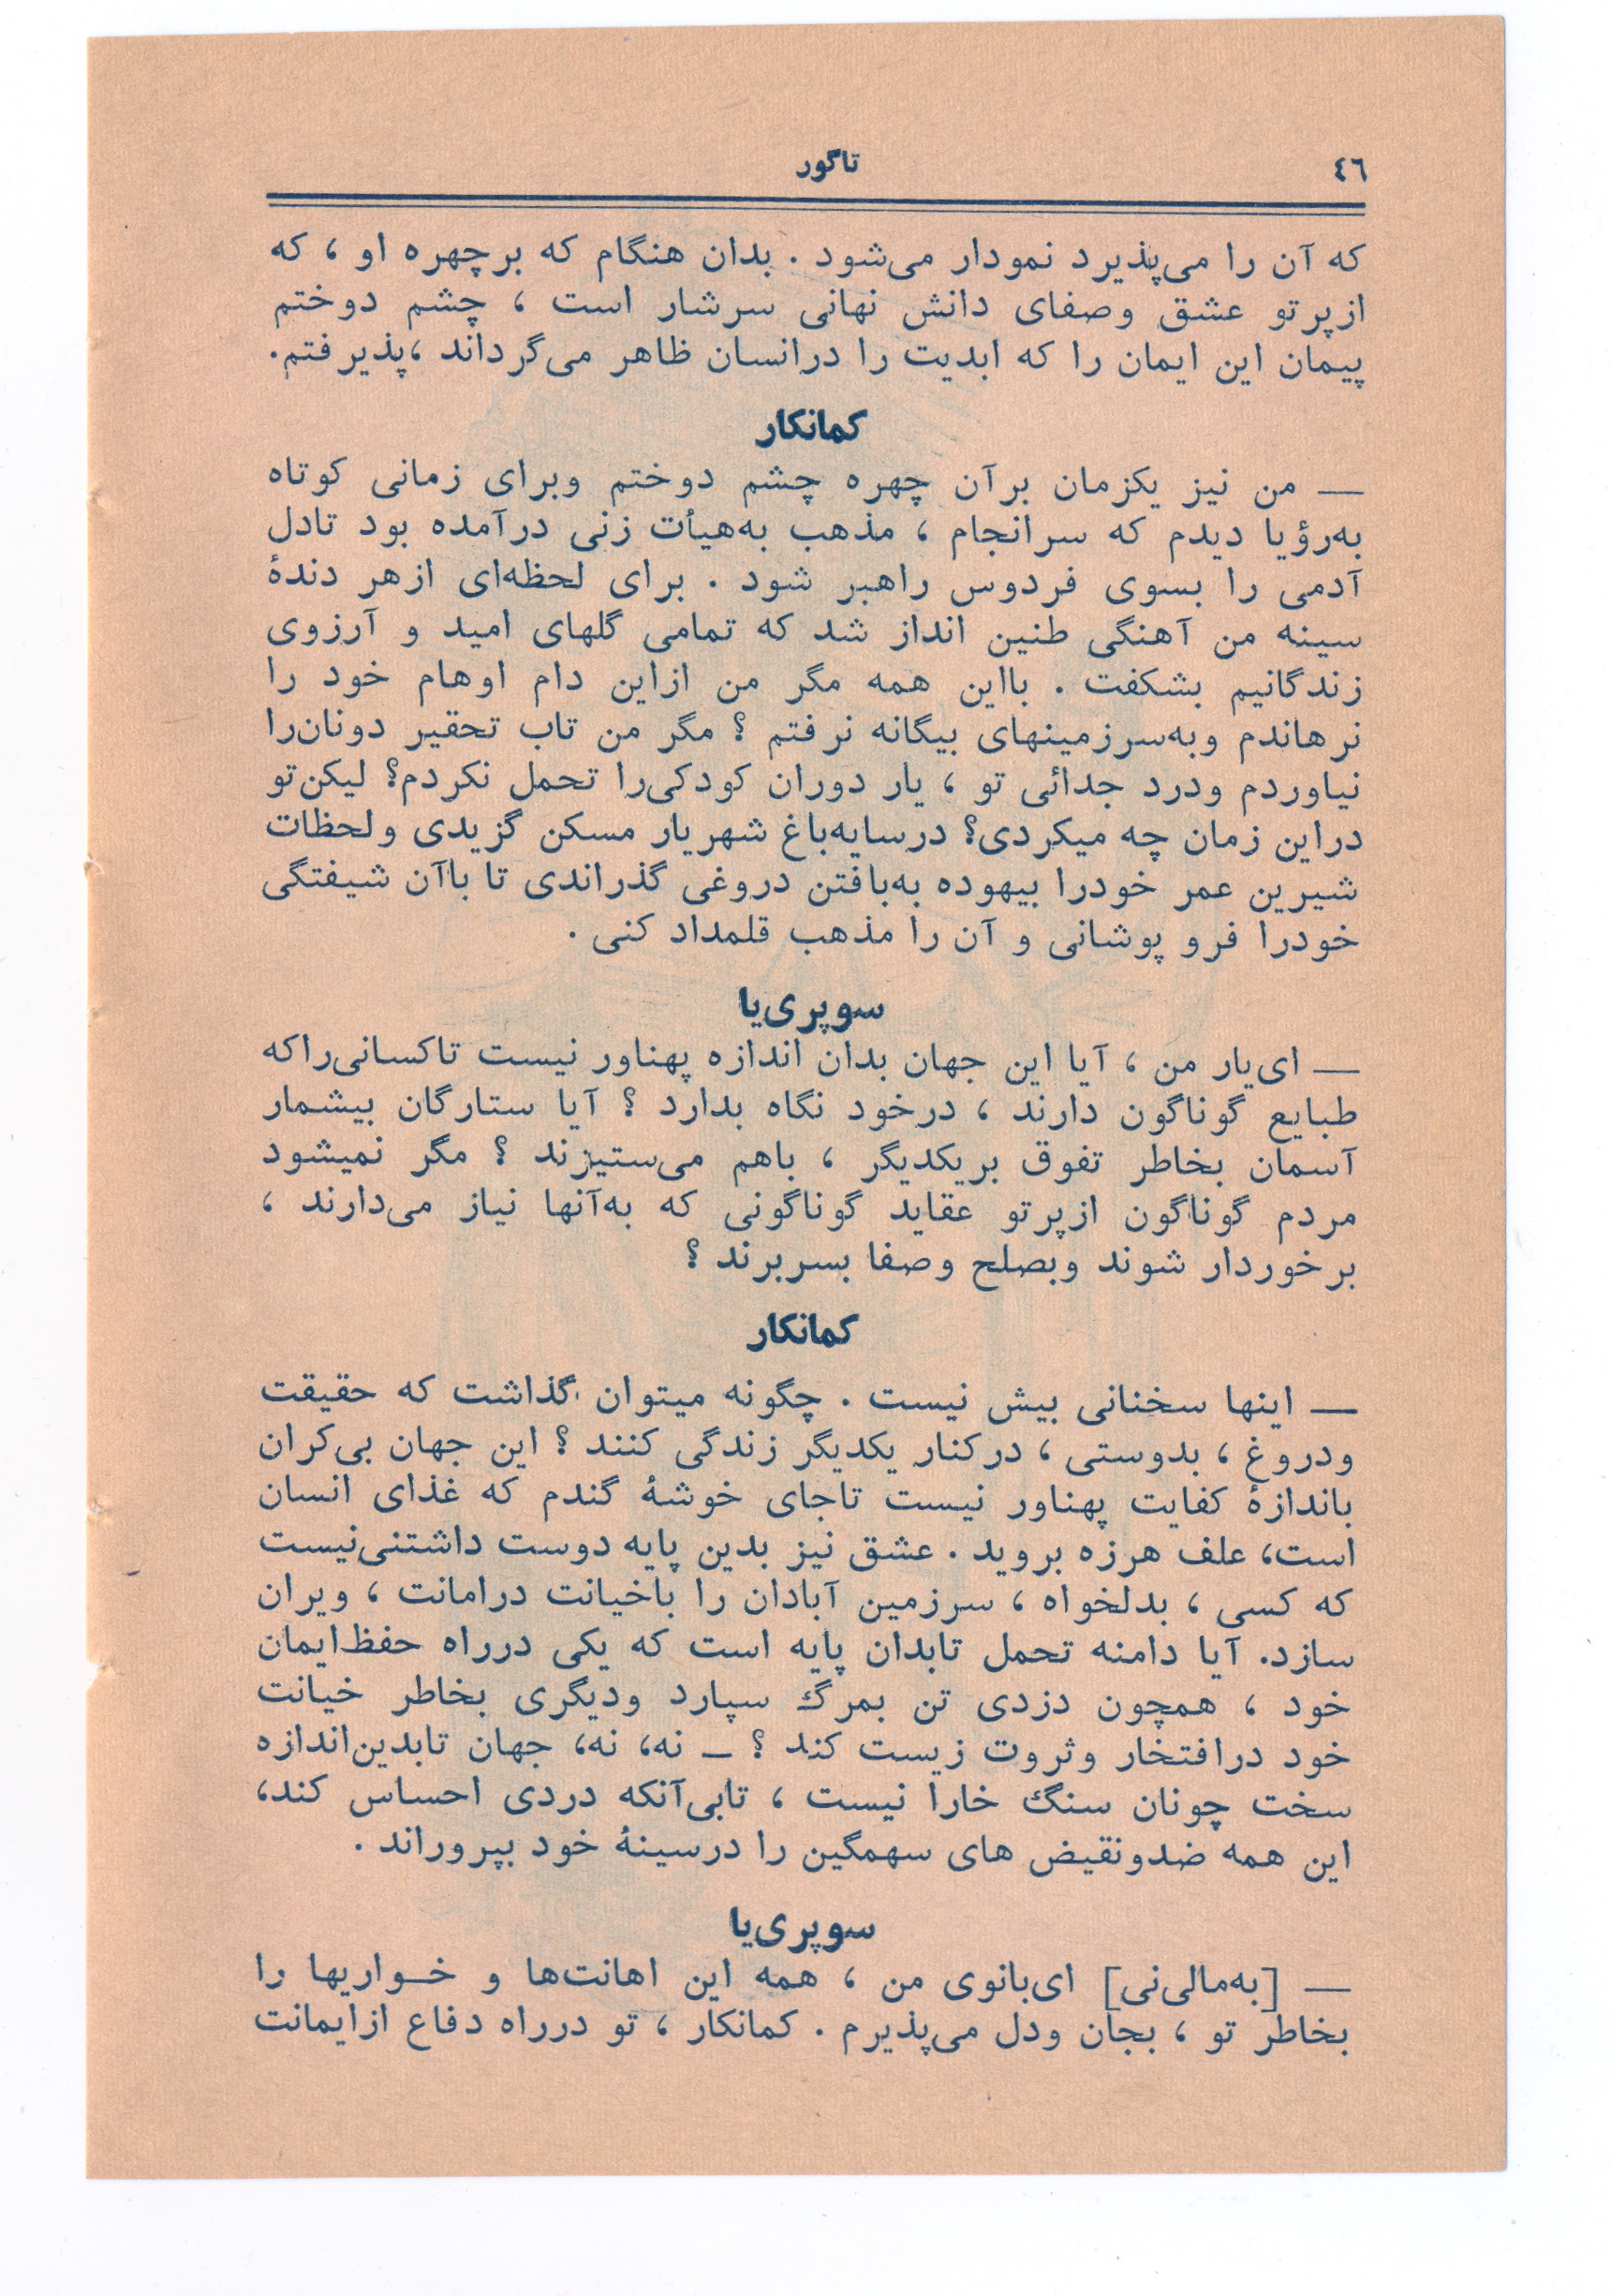 ٤٦
تاگور
که آن را می‌پذیرد نمودار می‌شود . بدان هنگام که برچهره او ، که
ازپرتو عشق وصفای دانش نهانی سرشار است ، چشم دوختم
پیمان این ایمان را که ابدیت را درانسان ظاهر می‌گرداند ،پذیرفتم.
کمانکار
— من نیز یکزمان برآن چهره چشم دوختم وبرای زمانی کوتاه
به‌رؤیا دیدم که سرانجام ، مذهب به‌هیأت زنی درآمده بود تادل
آدمی را بسوی فردوس راهبر شود . برای لحظه‌ای ازهر دندهٔ
سینه من آهنگی طنین انداز شد که تمامی گلهای امید و آرزوی
زندگانیم بشکفت . بااین همه مگر من ازاین دام اوهام خود را
نرهاندم وبه‌سرزمینهای بیگانه نرفتم ؟ مگر من تاب تحقیر دونان‌را
نیاوردم ودرد جدائی تو ، یار دوران کودکی‌را تحمل نکردم؟ لیکن‌تو
دراین زمان چه میکردی؟ درسایه‌باغ شهریار مسکن گزیدی ولحظات
شیرین عمر خودرا بیهوده به‌بافتن دروغی گذراندی تا باآن شیفتگی
خودرا فرو پوشانی و آن را مذهب قلمداد کنی .
سوپری‌یا
— ای‌یار من ، آیا این جهان بدان اندازه پهناور نیست تاکسانی‌راکه
طبایع گوناگون دارند ، درخود نگاه بدارد ؟ آیا ستارگان بیشمار
آسمان بخاطر تفوق بریکدیگر ، باهم می‌ستیزند ؟ مگر نمیشود
مردم گوناگون ازپرتو عقاید گوناگونی که به‌آنها نیاز می‌دارند ،
برخوردار شوند وبصلح وصفا بسربرند ؟
کمانکار
— اینها سخنانی بیش نیست . چگونه میتوان گذاشت که حقیقت
ودروغ ، بدوستی ، درکنار یکدیگر زندگی کنند ؟ این جهان بی‌کران
باندازهٔ کفایت پهناور نیست تاجای خوشهٔ گندم که غذای انسان
است، علف هرزه بروید . عشق نیز بدین پایه دوست داشتنی‌نیست
که کسی ، بدلخواه ، سرزمین آبادان را باخیانت درامانت ، ویران
سازد. آیا دامنه تحمل تابدان پایه است که یکی درراه حفظ‌ایمان
خود ، همچون دزدی تن بمرگ سپارد ودیگری بخاطر خیانت
خود درافتخار وثروت زیست کند ؟ — نه، نه، جهان تابدین‌اندازه
سخت چونان سنگ خارا نیست ، تابی‌آنکه دردی احساس کند،
این همه ضدونقیض های سهمگین را درسینهٔ خود بپروراند .
سوپری‌یا
— [به‌مالی‌نی] ای‌بانوی من ، همه این اهانت‌ها و خـواریها را
بخاطر تو ، بجان ودل می‌پذیرم . کمانکار ، تو درراه دفاع ازایمانت